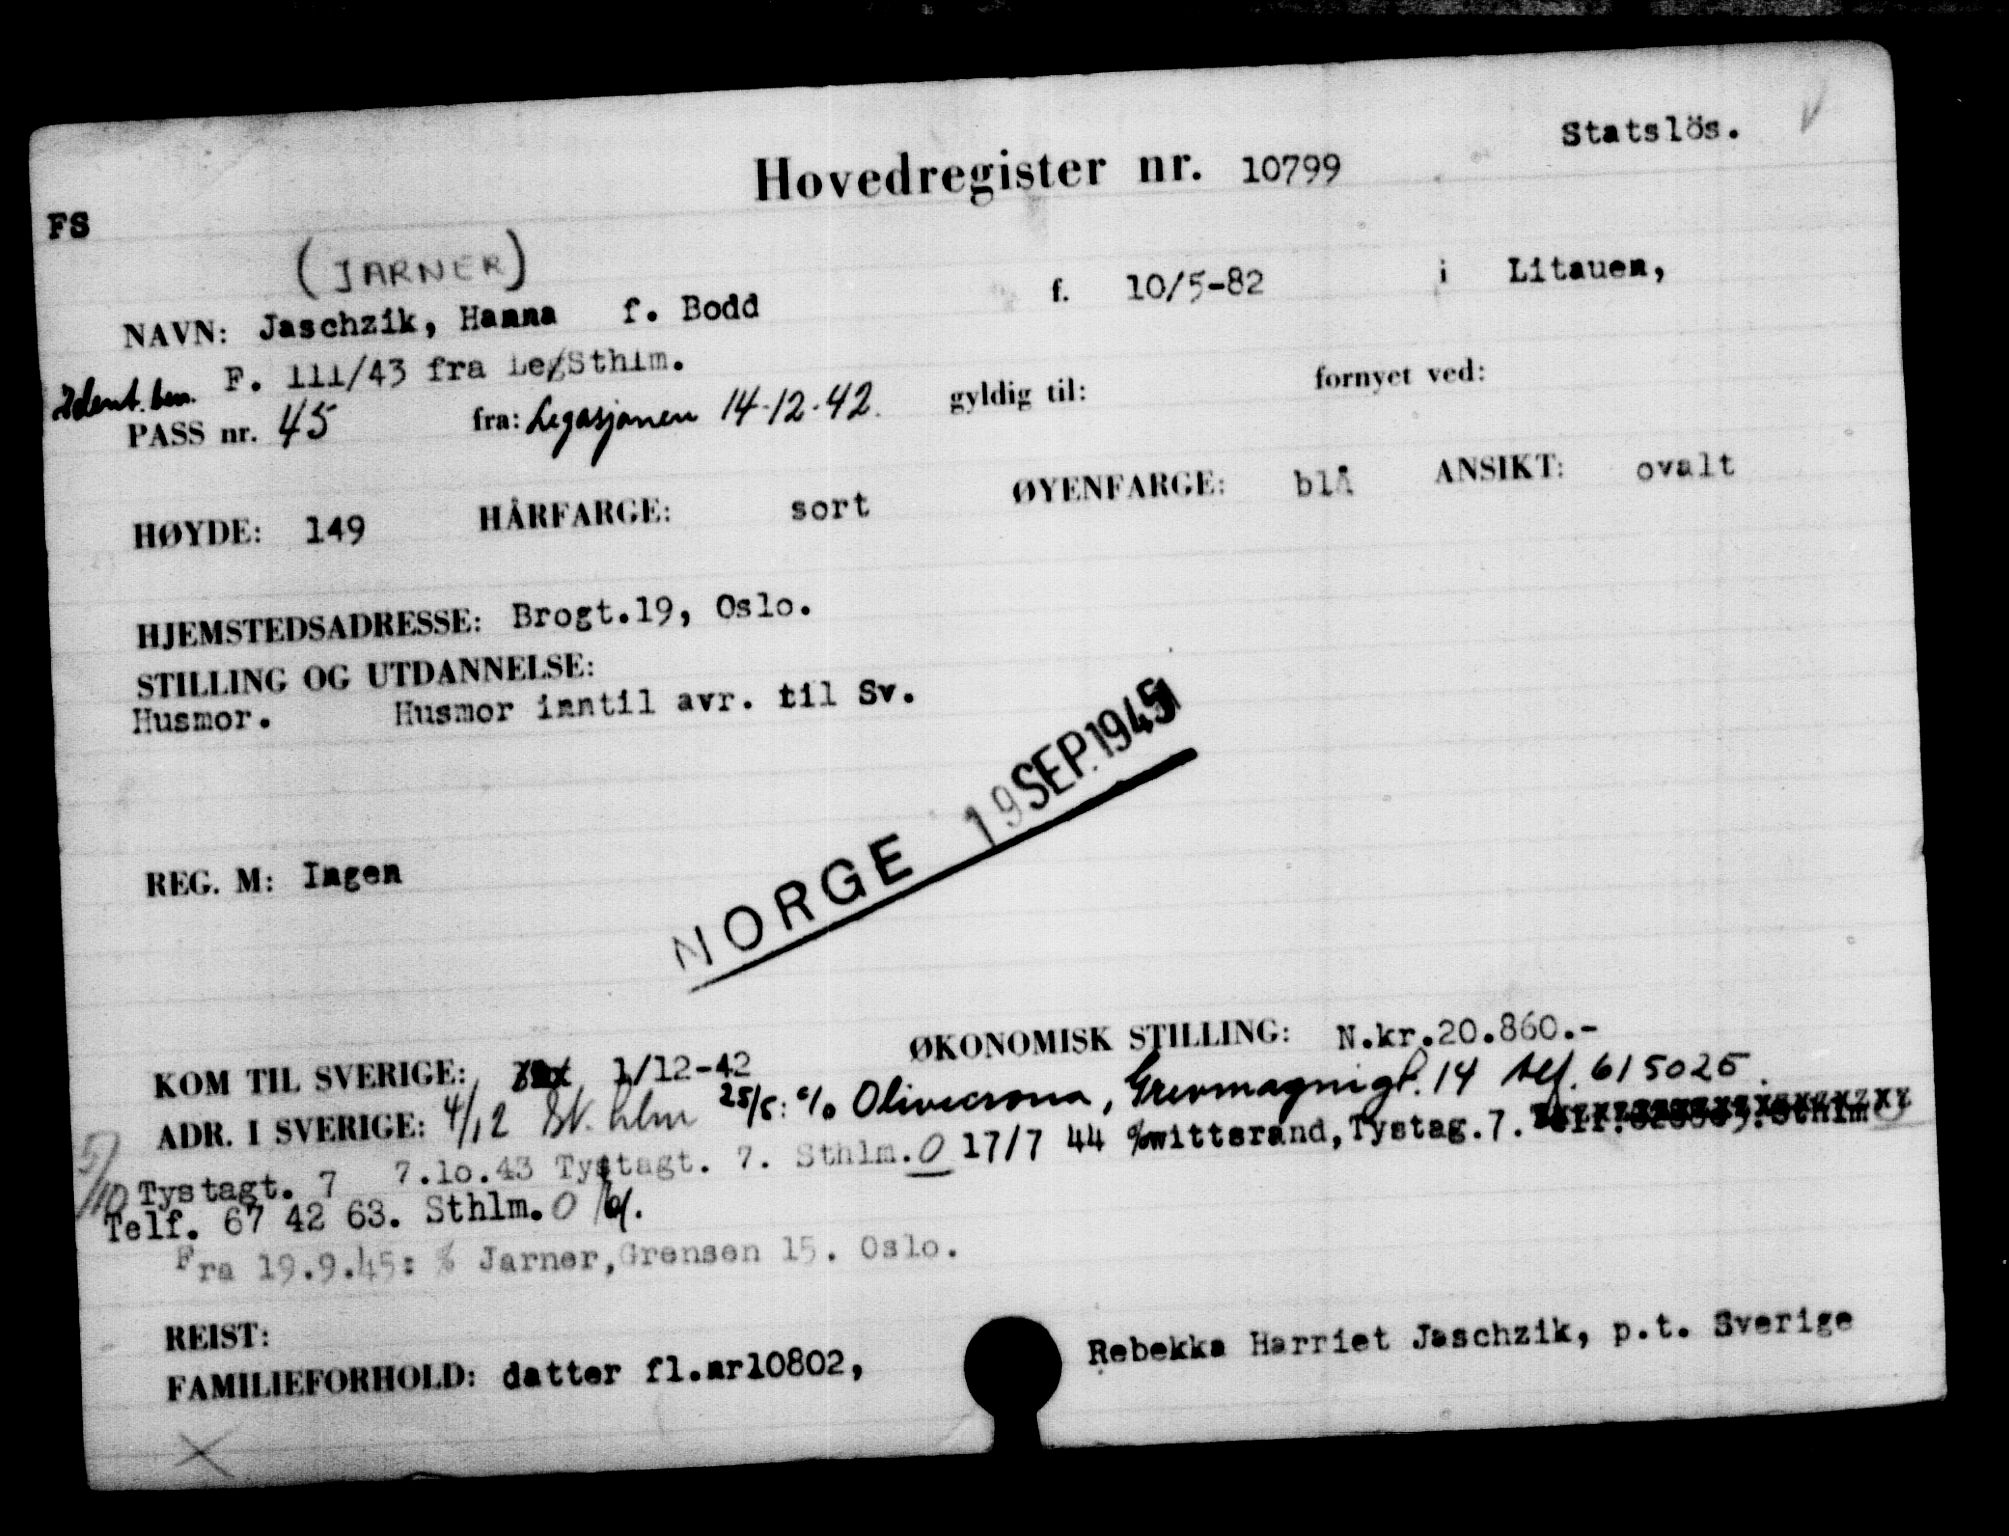 Statslös.
Hovedregister nr. 10799
FS
(JARNER)
NAVN: Jaschzik, Hanna f. Bodd f. 10/5-82 i Litauen,
Ident. bev. F. 111/43 fra Leg/Sthlm.
PASS nr. 45 fra: Legasjonen 14-12-42. gyldig til: fornyet ved:
HØYDE: 149 HÅRFARGE: sort ØYENFARGE: blå ANSIKT: ovalt
HJEMSTEDSADRESSE: Brogt.19, Oslo.
STILLING OG UTDANNELSE:
Husmor. Husmor inntil avr. til Sv.
NORGE 19 SEP. 1945
REG. M: Ingen
KOM TIL SVERIGE: 1/12-42 ØKONOMISK STILLING: N.kr.20.860.-
ADR. I SVERIGE: 4/12 St. hlm 25/5: c/o Olivecrona, Grevmagnigt. 14 telf. 615025.
5/10 Tystagt. 7 7.10.43 Tystagt. 7. Sthlm. O 17/7 44 %Wittsrand, Tystag.7.
Telf. 67 42 63. Sthlm. O
Fra 19.9.45: % Jarner, Grensen 15. Oslo.
REIST:
FAMILIEFORHOLD: datter fl.nr10802, Rebekka Harriet Jaschzik, p.t. Sverige